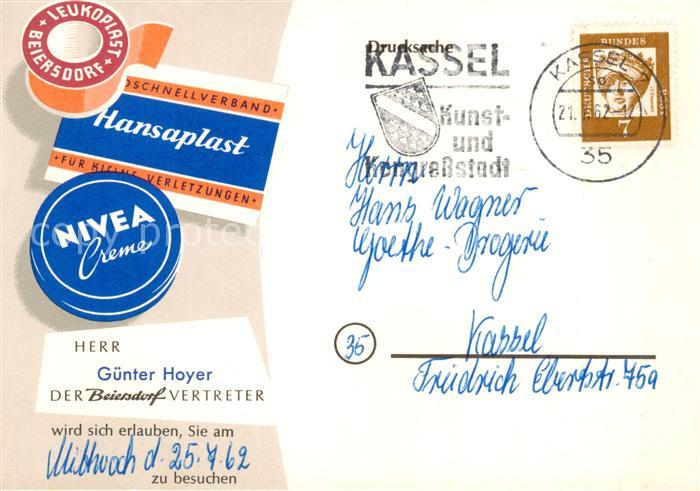 LEUKOPLAST
BEIERSDORF
SCHNELLVERBAND
Hansaplast
FÜR KLEINE VERLETZUNGEN
NIVEA
Creme
HERR
Günter Hoyer
DER Beiersdorf VERTRETER
wird sich erlauben, Sie am
Mittwoch d. 25.7.62
zu besuchen
Drucksache
KASSEL
Kunst-
und
Kongreßstadt
KASSEL
21. 62
35
BUNDES
POST
DEUTSCHE
7
Herrn
Hans Wagner
Goethe-Drogerie
35
Kassel
Friedrich Ebertstr. 75a